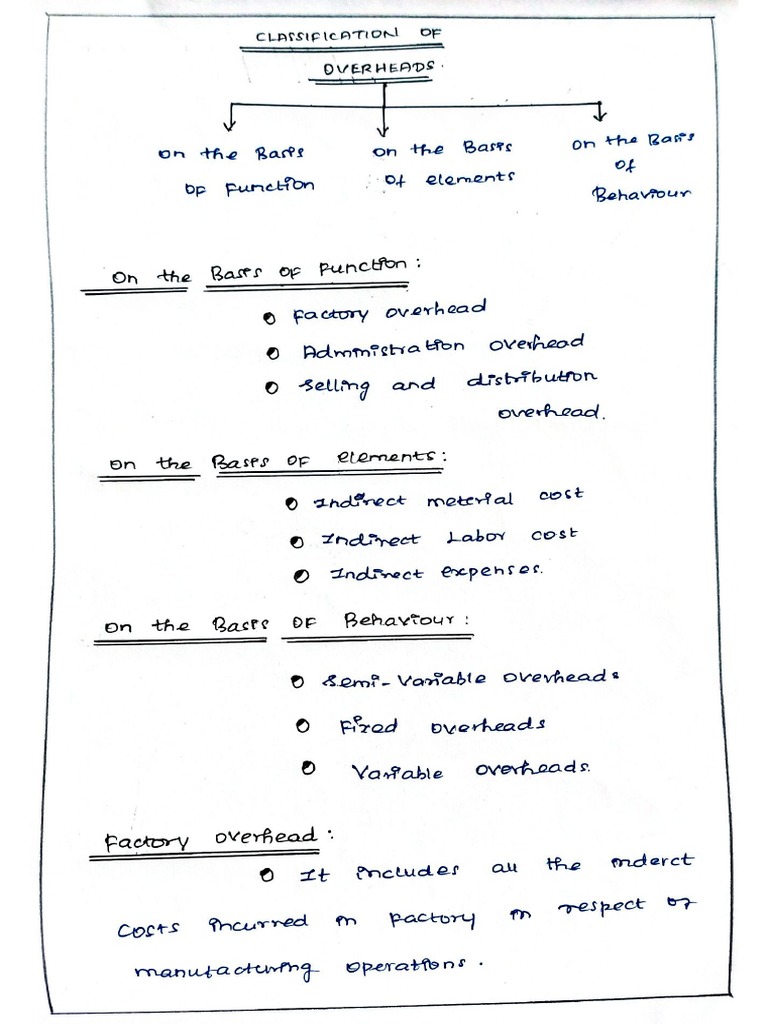 CLASSIFICATION OF
OVERHEADS.
on the Basis
OF Function
on the Basis
of elements
on the Basis
of
Behaviour
On the Basis of Function:
Factory overhead
Administration overhead
Selling and distribution
overhead.
on the Basis of elements:
Indirect meterial cost
Indirect Labor cost
Indirect expenses.
on the Basis of Behaviour:
Semi-Variable overheads
Fixed overheads
Variable overheads.
Factory overhead:
It includes all the inderct
costs incurred in factory in respect of
manufacturing operations.